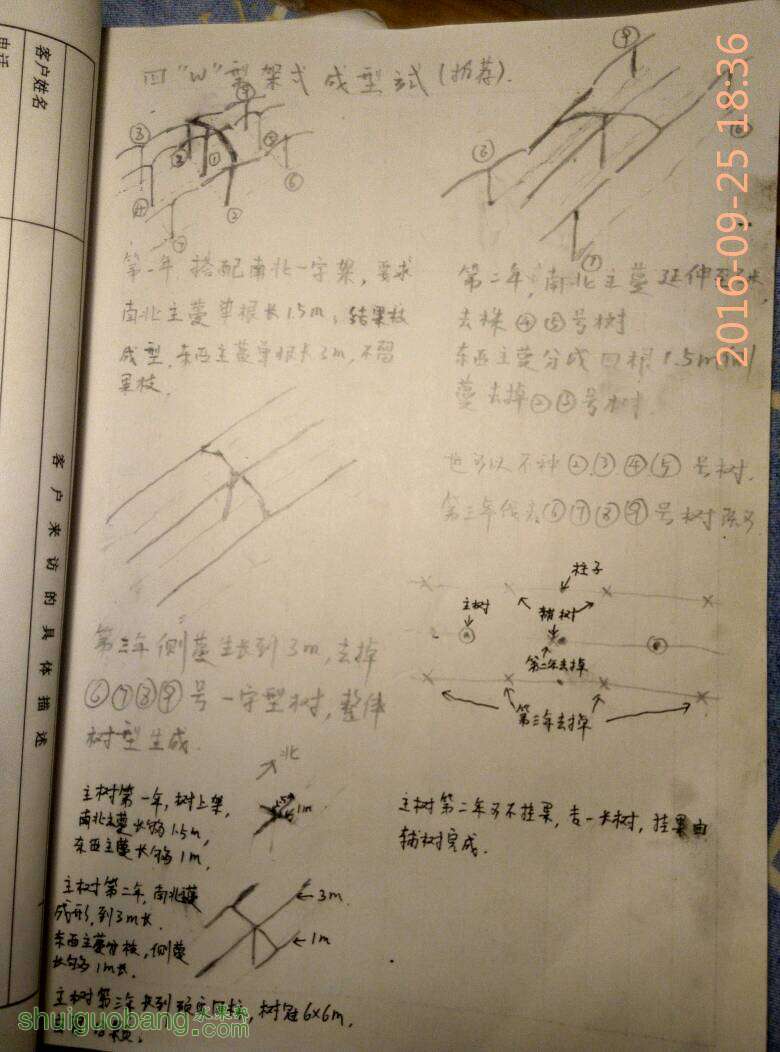 客户姓名
电话
客户来访的具体描述
2016-09-25 18:36
四"W"型架式成型试(推荐).
③ ② ① ⑤ ⑥ ④ ② ⑦
⑨ ⑧ ⑥ ⑦
第一年,搭配南北一字架,要求
南北主蔓单根长1.5m,结果枝
成型,东西主蔓单根长3m,不留
果枝.
第二年,南北主蔓延伸至3米,
去株④⑤号树
东西主蔓分成四根1.5m侧
蔓去掉②③号树.
也可以不种②,③,④,⑤号树.
第三年
⑥⑦⑧⑨号树
第三年侧蔓生长到3m,去掉
⑥⑦⑧⑨号一字型树,整体
树型生成.
柱子
主树
辅树
第二年去掉
第三年去掉
北
1.5
1m
主树第一年,树上架,
南北主蔓长够1.5m,
东西主蔓长够1m,
主树第二年可不挂果,专一长树,挂果由
辅树完成.
主树第二年,南北蔓
成形,到3m长.
东西主蔓分枝,侧蔓
长够1m长.
3m
1m
主树第三年长到
树冠6×6m,
水果帮
shuiguobang.com